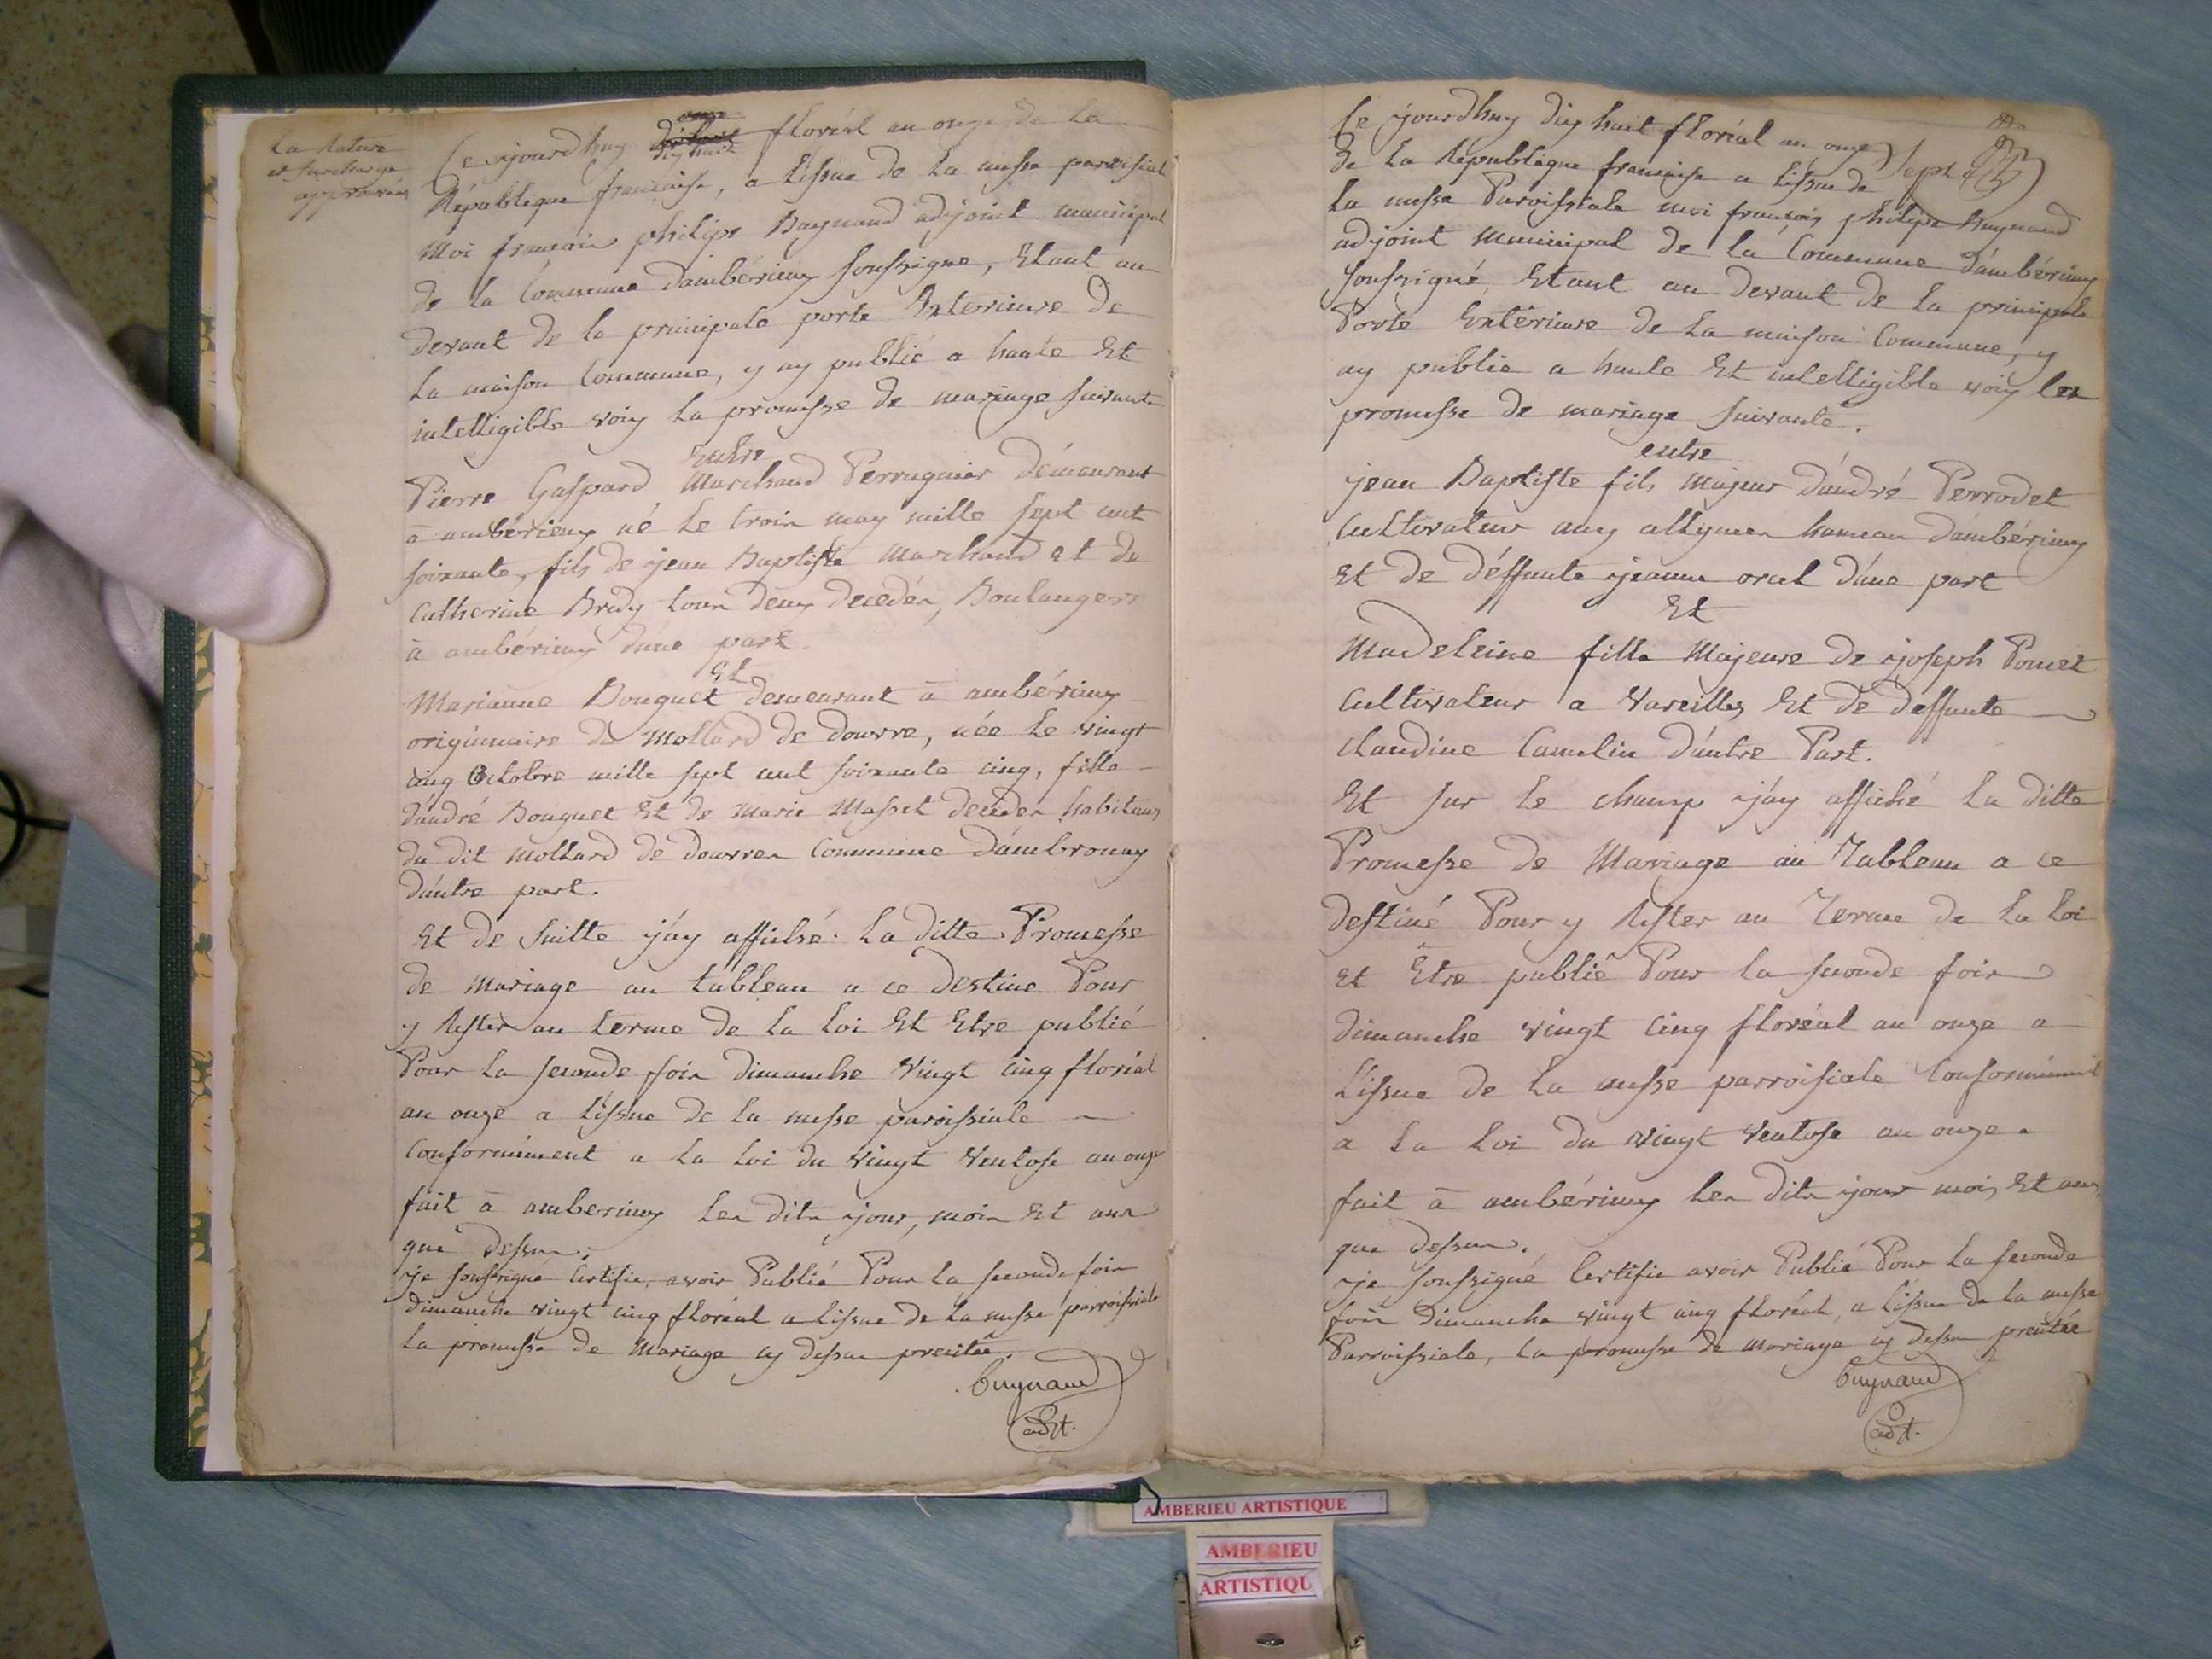 La Rature
et surcharge
approuvées
Ce ajourdhuy dix huit floréal an onze de la
République francaise, a lissue de la messe paroissial
Moi francois philipe Buynand adjoint municipal
de la Commune dambérieux soussigne, Etant au
devant de la principale porte Exterieure de
la maison Commune, y ay publié a haute Et
intelligible voix la promesse de mariage suivante
Entre
Pierre Gaspard Marchand Perruquier démeurant
à ambérieux né le trois may mille sept cent
soixante, fils de jean Baptiste Marchand et de
Catherine Brady tous deux decedés, Boulangers
à ambérieux dúne part.
Et
Marianne Bouguet demeurant à ambérieux
originnaire du Mollard de douvre, née le vingt
cinq Octobre mille sept cent soixante cinq, fille
dándré Bouguet Et de Marie Masset decedés habitans
du dit Mollard de douvres Commune Dámbronay
dáutre part.
Et de suitte jáy affiché la ditte Promesse
de mariage au tableau a ce destine Pour
y Rester au terme de la loi Et Etre publié
Pour la seconde fois dimanche vingt cinq floréal
an onze a lissue de la messe paroissiale
Conformément a la loi du vingt Ventose an onze
fait à amberieux les dits jour, mois Et ans
que dessus.
je soussigné Certifie, avoir Publié Pour la seconde fois
dimanche vingt cinq floréal a lissue de la messe parroissiale
la promesse de Mariage cy dessus precitée.
Buynand
adjt.
Ce ajourdhuy dix huit floréal an onze
Sept
de la République francaise a lissue de
la messe Paroissiale moi francois philipe Buynand
adjoint Municipal de la Commune dámbérieux
soussigné, Etant au devant de la principale
Porte Extérieure de la maison Commune, y
ay publie a haute Et intelligible voix les
promesse de mariage suivante.
entre
jean Baptiste fils Majeur dándré Perrodet
Cultivateur aux allymes hameau dambérieux
Et de déffunte jeanne orcel dúne part
Et
Madeleine fille Majeure de joseph Pomet
Cultivateur a Vareilles Et de deffunte
Claudine Camelin dáutre Part.
Et sur le champ jáy affiché la ditte
Promesse de Mariage au Tableau a ce
destiné Pour y Rester au Terme de la loi
Et Etre publié Pour la seconde fois
dimanche vingt Cinq floréal an onze a
lissue de la messe parroissiale Conformément
a la loi du vingt Ventose an onze.
fait à ambérieux les dits jour mois Et ans
que dessus.
je soussigné Certifie avoir Publié Pour la seconde
fois dimanche vingt cinq floréal, a lissue de la messe
Parroissiale, la promesse de mariage cy dessus precitée
Buynand
adjt.
AMBERIEU ARTISTIQUE
AMBERIEU
ARTISTIQU